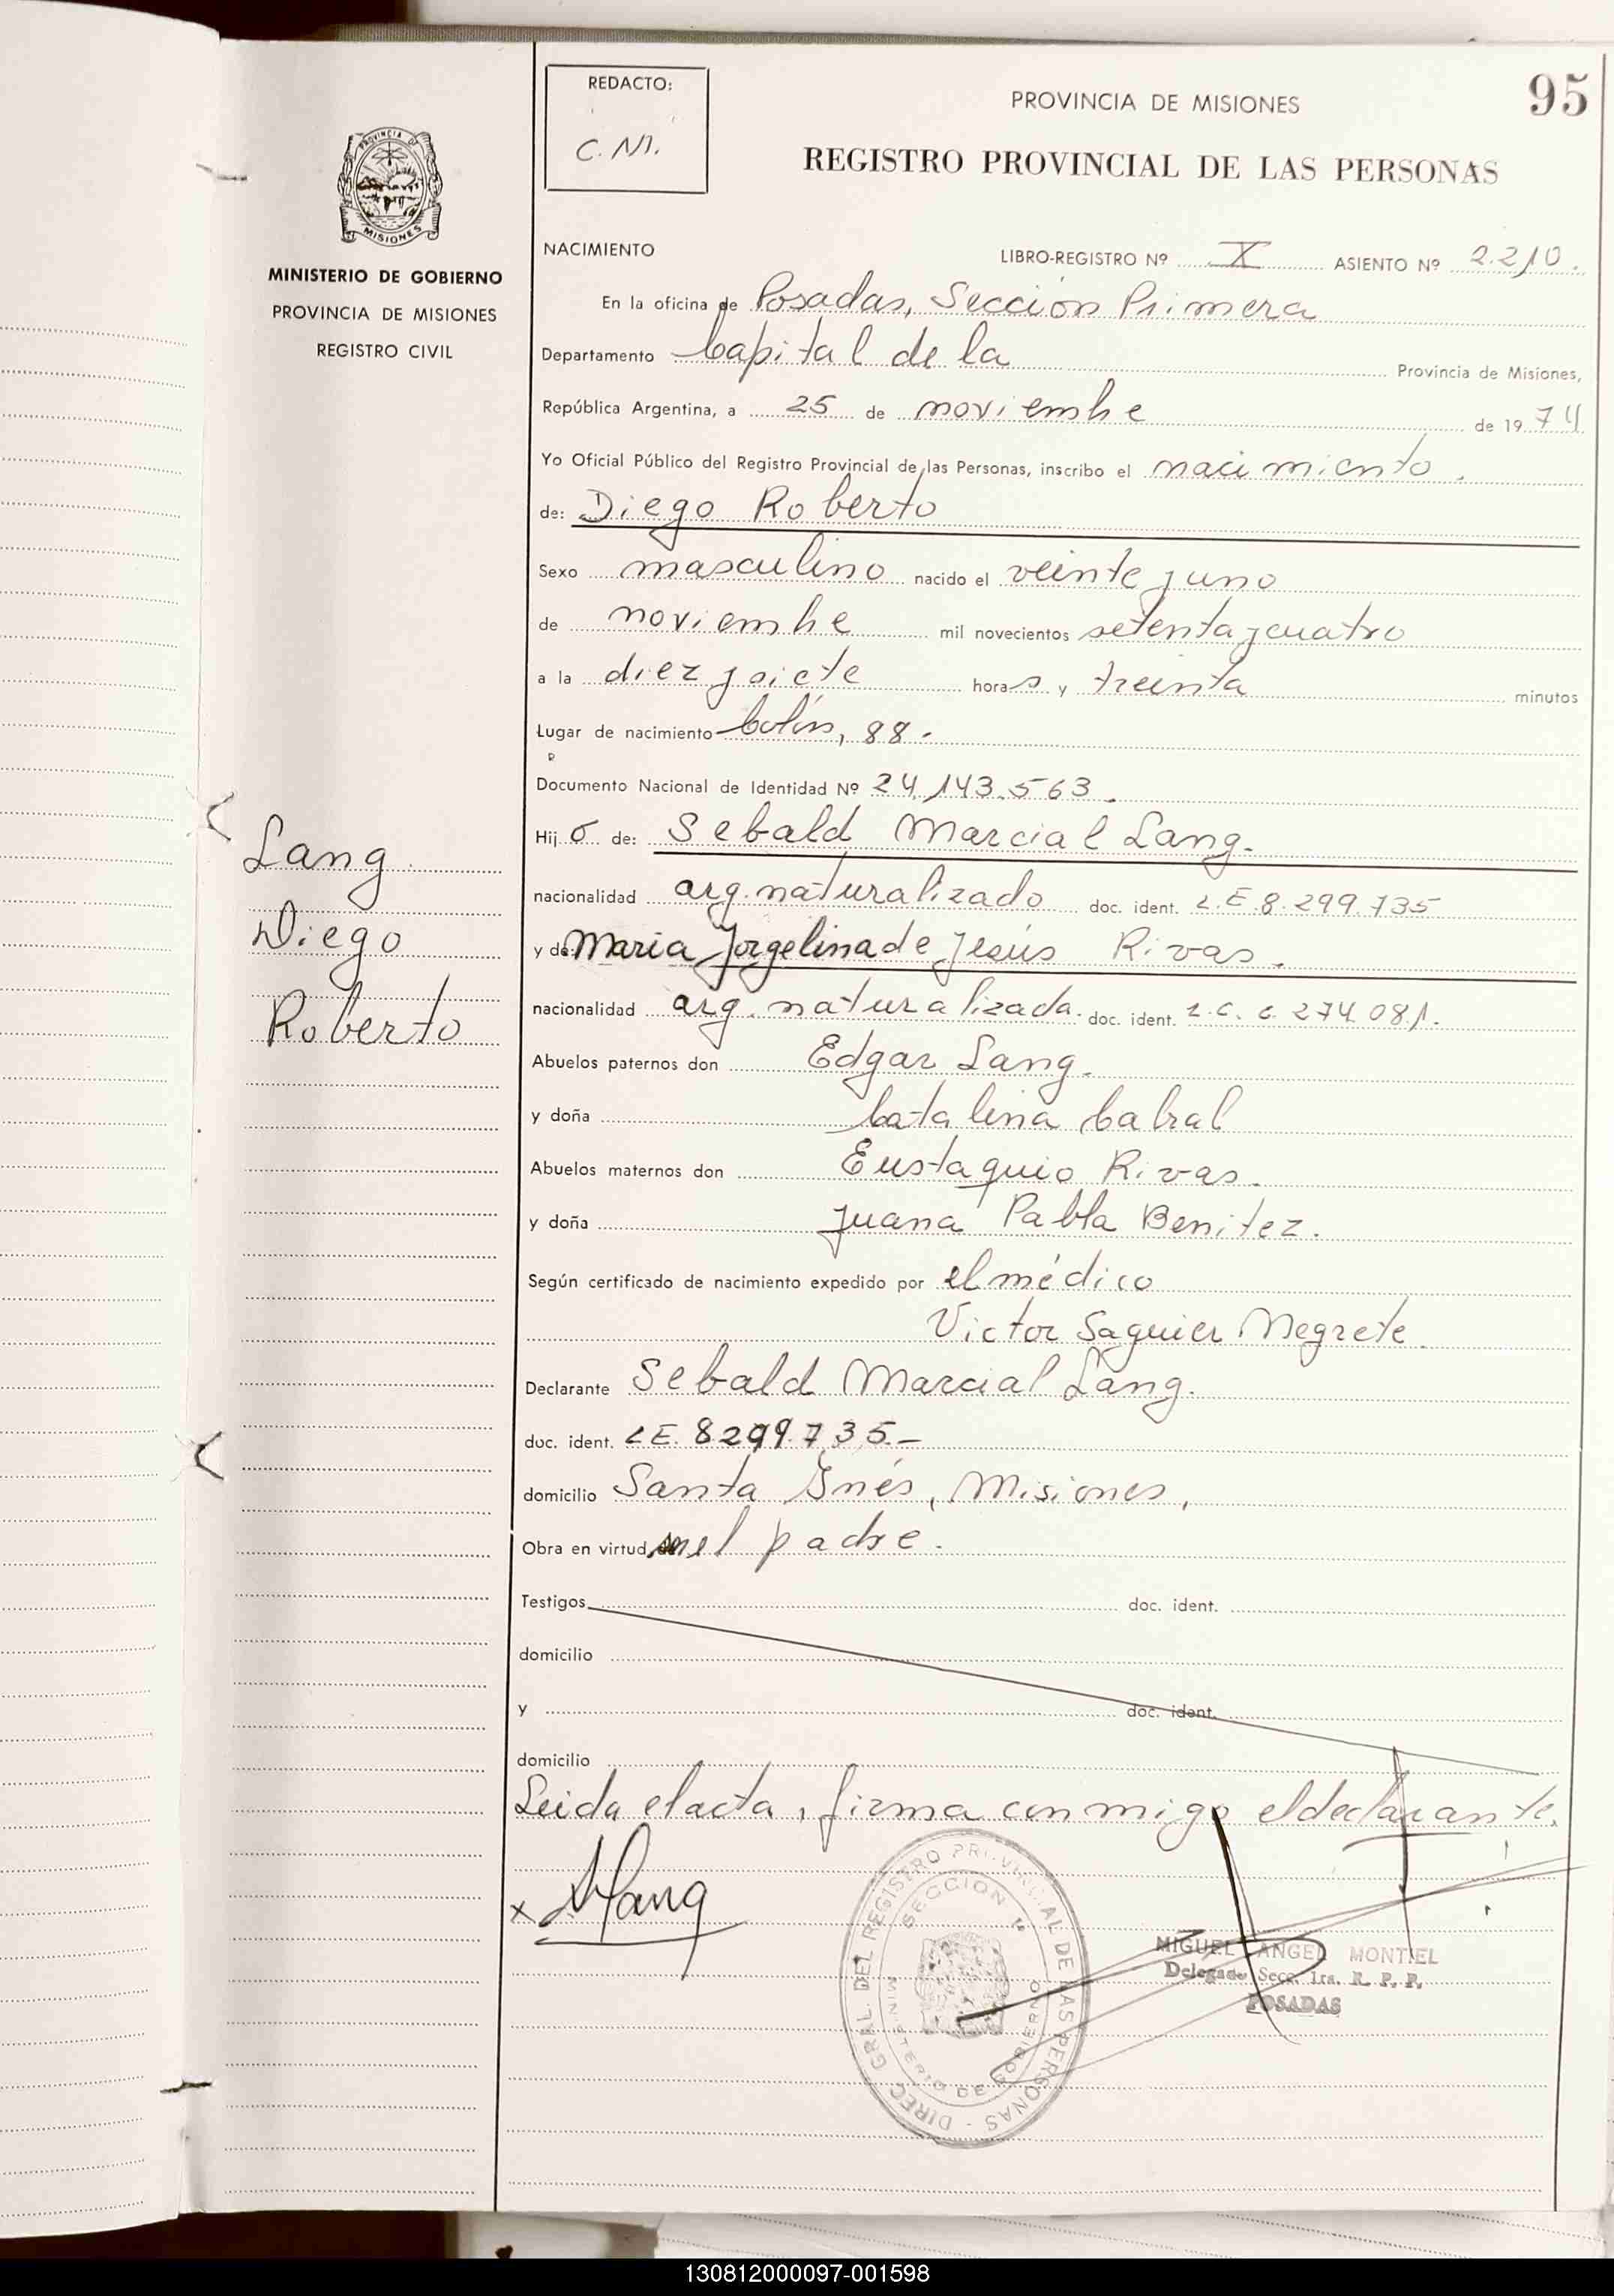 95
REDACTO:
C. M.
PROVINCIA DE MISIONES
REGISTRO PROVINCIAL DE LAS PERSONAS
PROVINCIA DE
MISIONES
MINISTERIO DE GOBIERNO
PROVINCIA DE MISIONES
REGISTRO CIVIL
NACIMIENTO LIBRO-REGISTRO Nº X ASIENTO Nº 2.210.
En la oficina de Posadas, Sección Primera
Departamento Capital de la Provincia de Misiones,
República Argentina, a 25 de noviembre de 1974
Yo Oficial Público del Registro Provincial de las Personas, inscribo el nacimiento.
de: Diego Roberto
Sexo masculino nacido el veinte y uno
de noviembre mil novecientos setenta y cuatro
a la diez y siete horas y treinta minutos
Lugar de nacimiento Colón, 88.
Documento Nacional de Identidad Nº 24.143.563.
Hijo de: Sebald Marcial Lang.
nacionalidad arg. naturalizado doc. ident. L.E 8.299.735
y de María Jorgelina de Jesús Rivas.
nacionalidad arg. naturalizada. doc. ident. L.C. 6.274.081.
Abuelos paternos don Edgar Lang.
y doña Catalina Cabral
Abuelos maternos don Eustaquio Rivas.
y doña Juana Pabla Benitez.
Según certificado de nacimiento expedido por el médico
Victor Saguier Negrete.
Declarante Sebald Marcial Lang.
doc. ident. LE. 8299.735.-
domicilio Santa Inés, Misiones,
Obra en virtud el padre.
Testigos doc. ident.
domicilio
y doc. ident.
domicilio
Leida el acta, firma conmigo el declarante.
Lang
Diego
Roberto
x Lang
DIREC. GRAL. DEL REGISTRO PROVINCIAL DE LAS PERSONAS
SECCION 1ª
MINISTERIO DE GOBIERNO
MIGUEL ANGEL MONTIEL
Delegado Secc. 1ra. R. P. P.
POSADAS
130812000097-001598